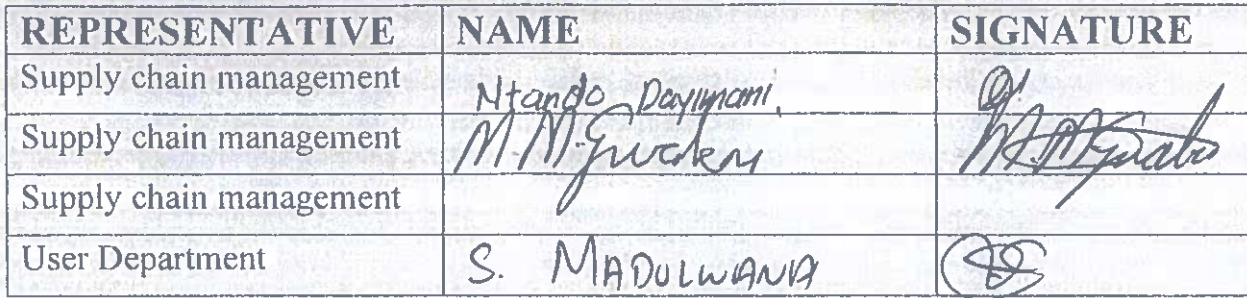 REPRESENTATIVE NAME SIGNATURE
Supply chain management Ntando Dayimani
Supply chain management M.
Supply chain management
User Department S. MADULWANA